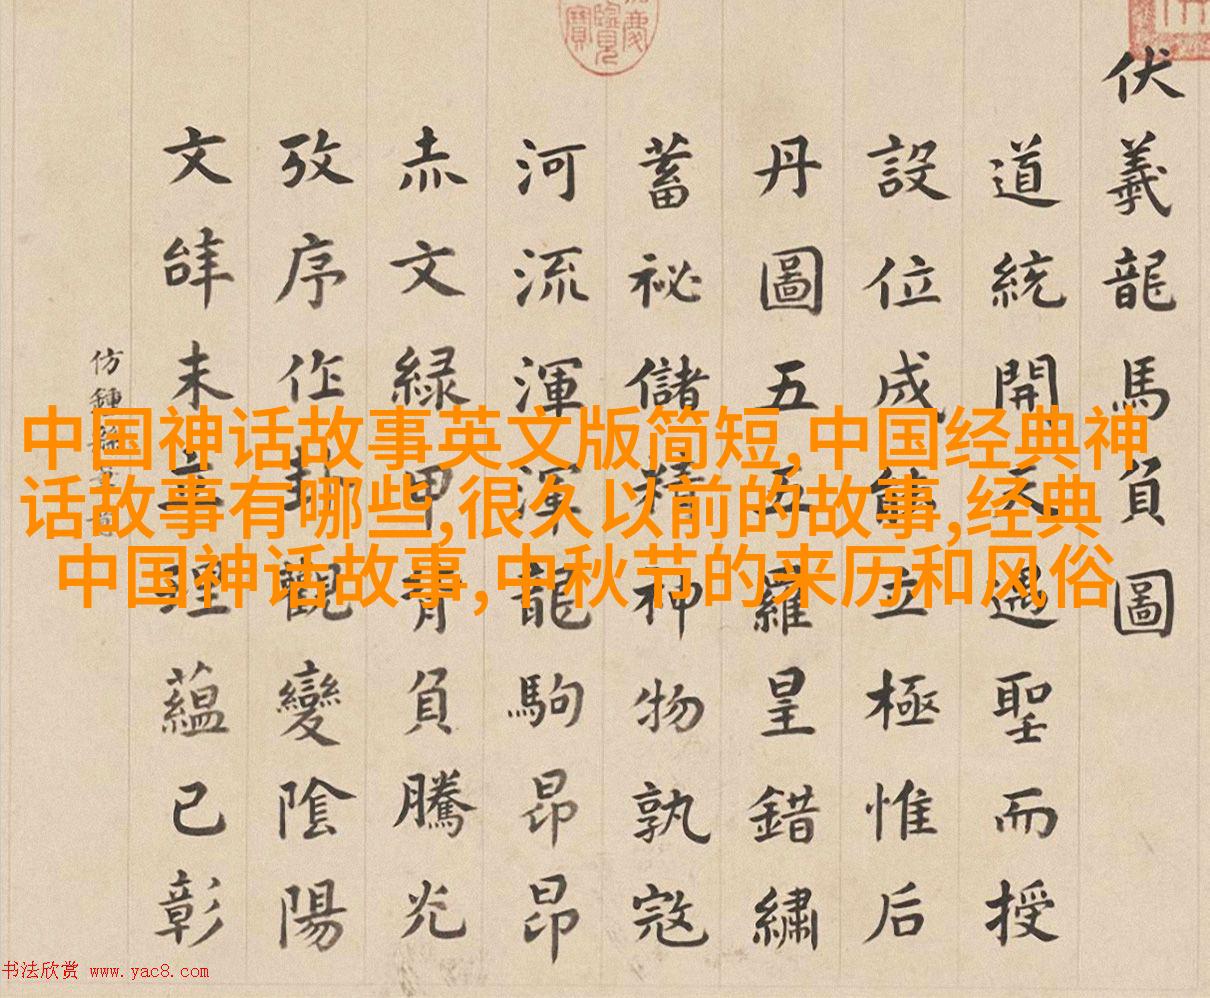 伏羲龍馬負圖
道統開天遇聖而授
設位成能立極惟后
丹圖五五羅皇錯繡
蓄祕儲精神物孰寇
河流渾渾龍駒昂昂
赤文緑甲背負騰光
攷序作卦觀變陰陽
文辝未立理蘊已彰
仿鍾繇
中国神话故事英文版简短,中国经典神
话故事有哪些,很久以前的故事,经典
中国神话故事,中秋节的来历和风俗
书法欣赏 www.yac8.com